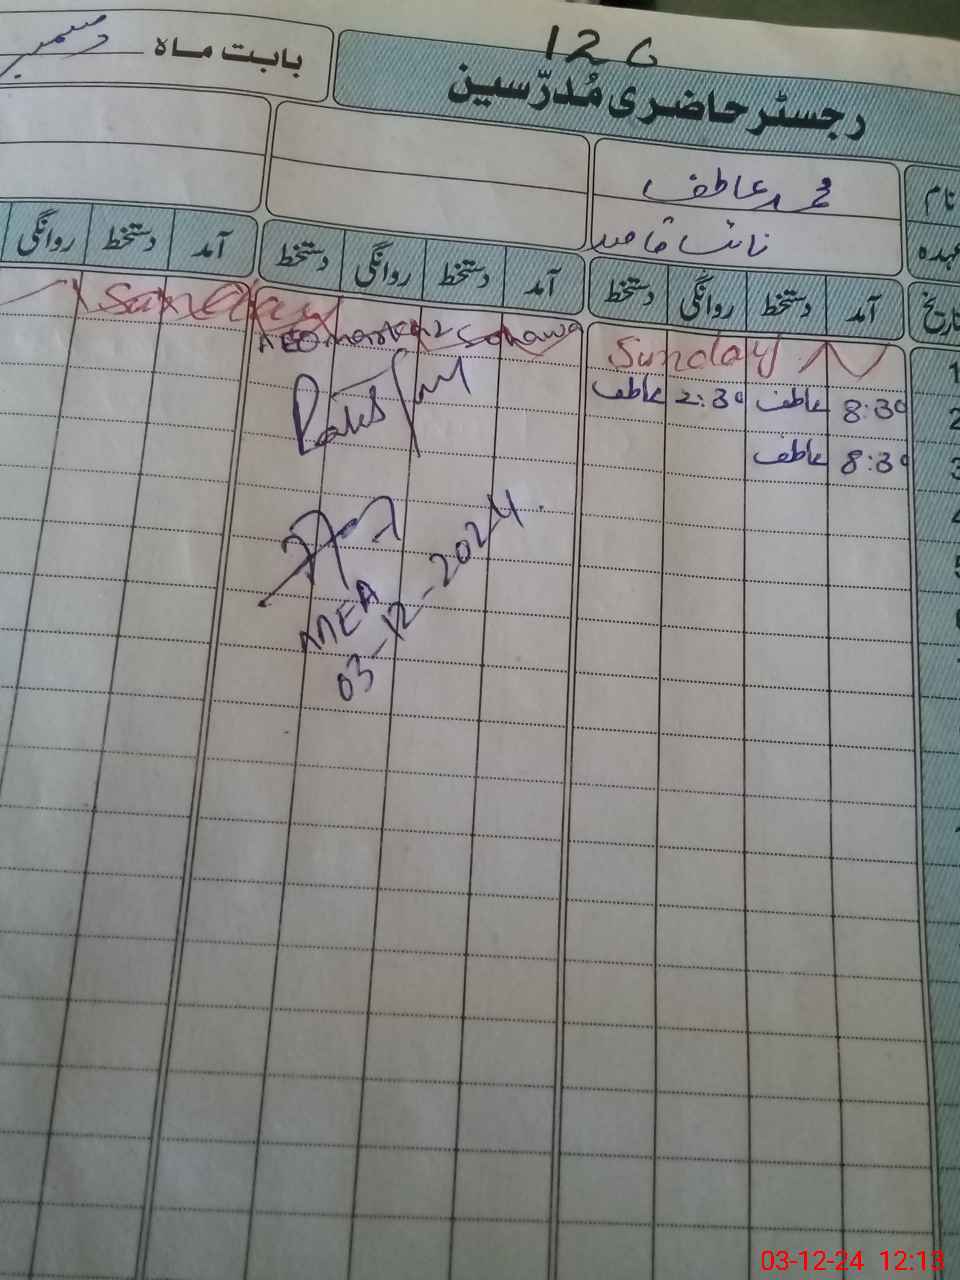 126
بابت ماہ دسمبر
رجسٹر حاضری مُدرّسین
نام محمد عاطف
عہدہ نائب قاصد
تاریخ آمد دستخط روانگی دستخط آمد دستخط روانگی دستخط آمد دستخط روانگی
1 Sunday Sunday
AEO markaz Sohawa
2 8:30 عاطف 2:30 عاطف
3 8:30 عاطف
4
5
MEA
03-12-2024.
03-12-24 12:13